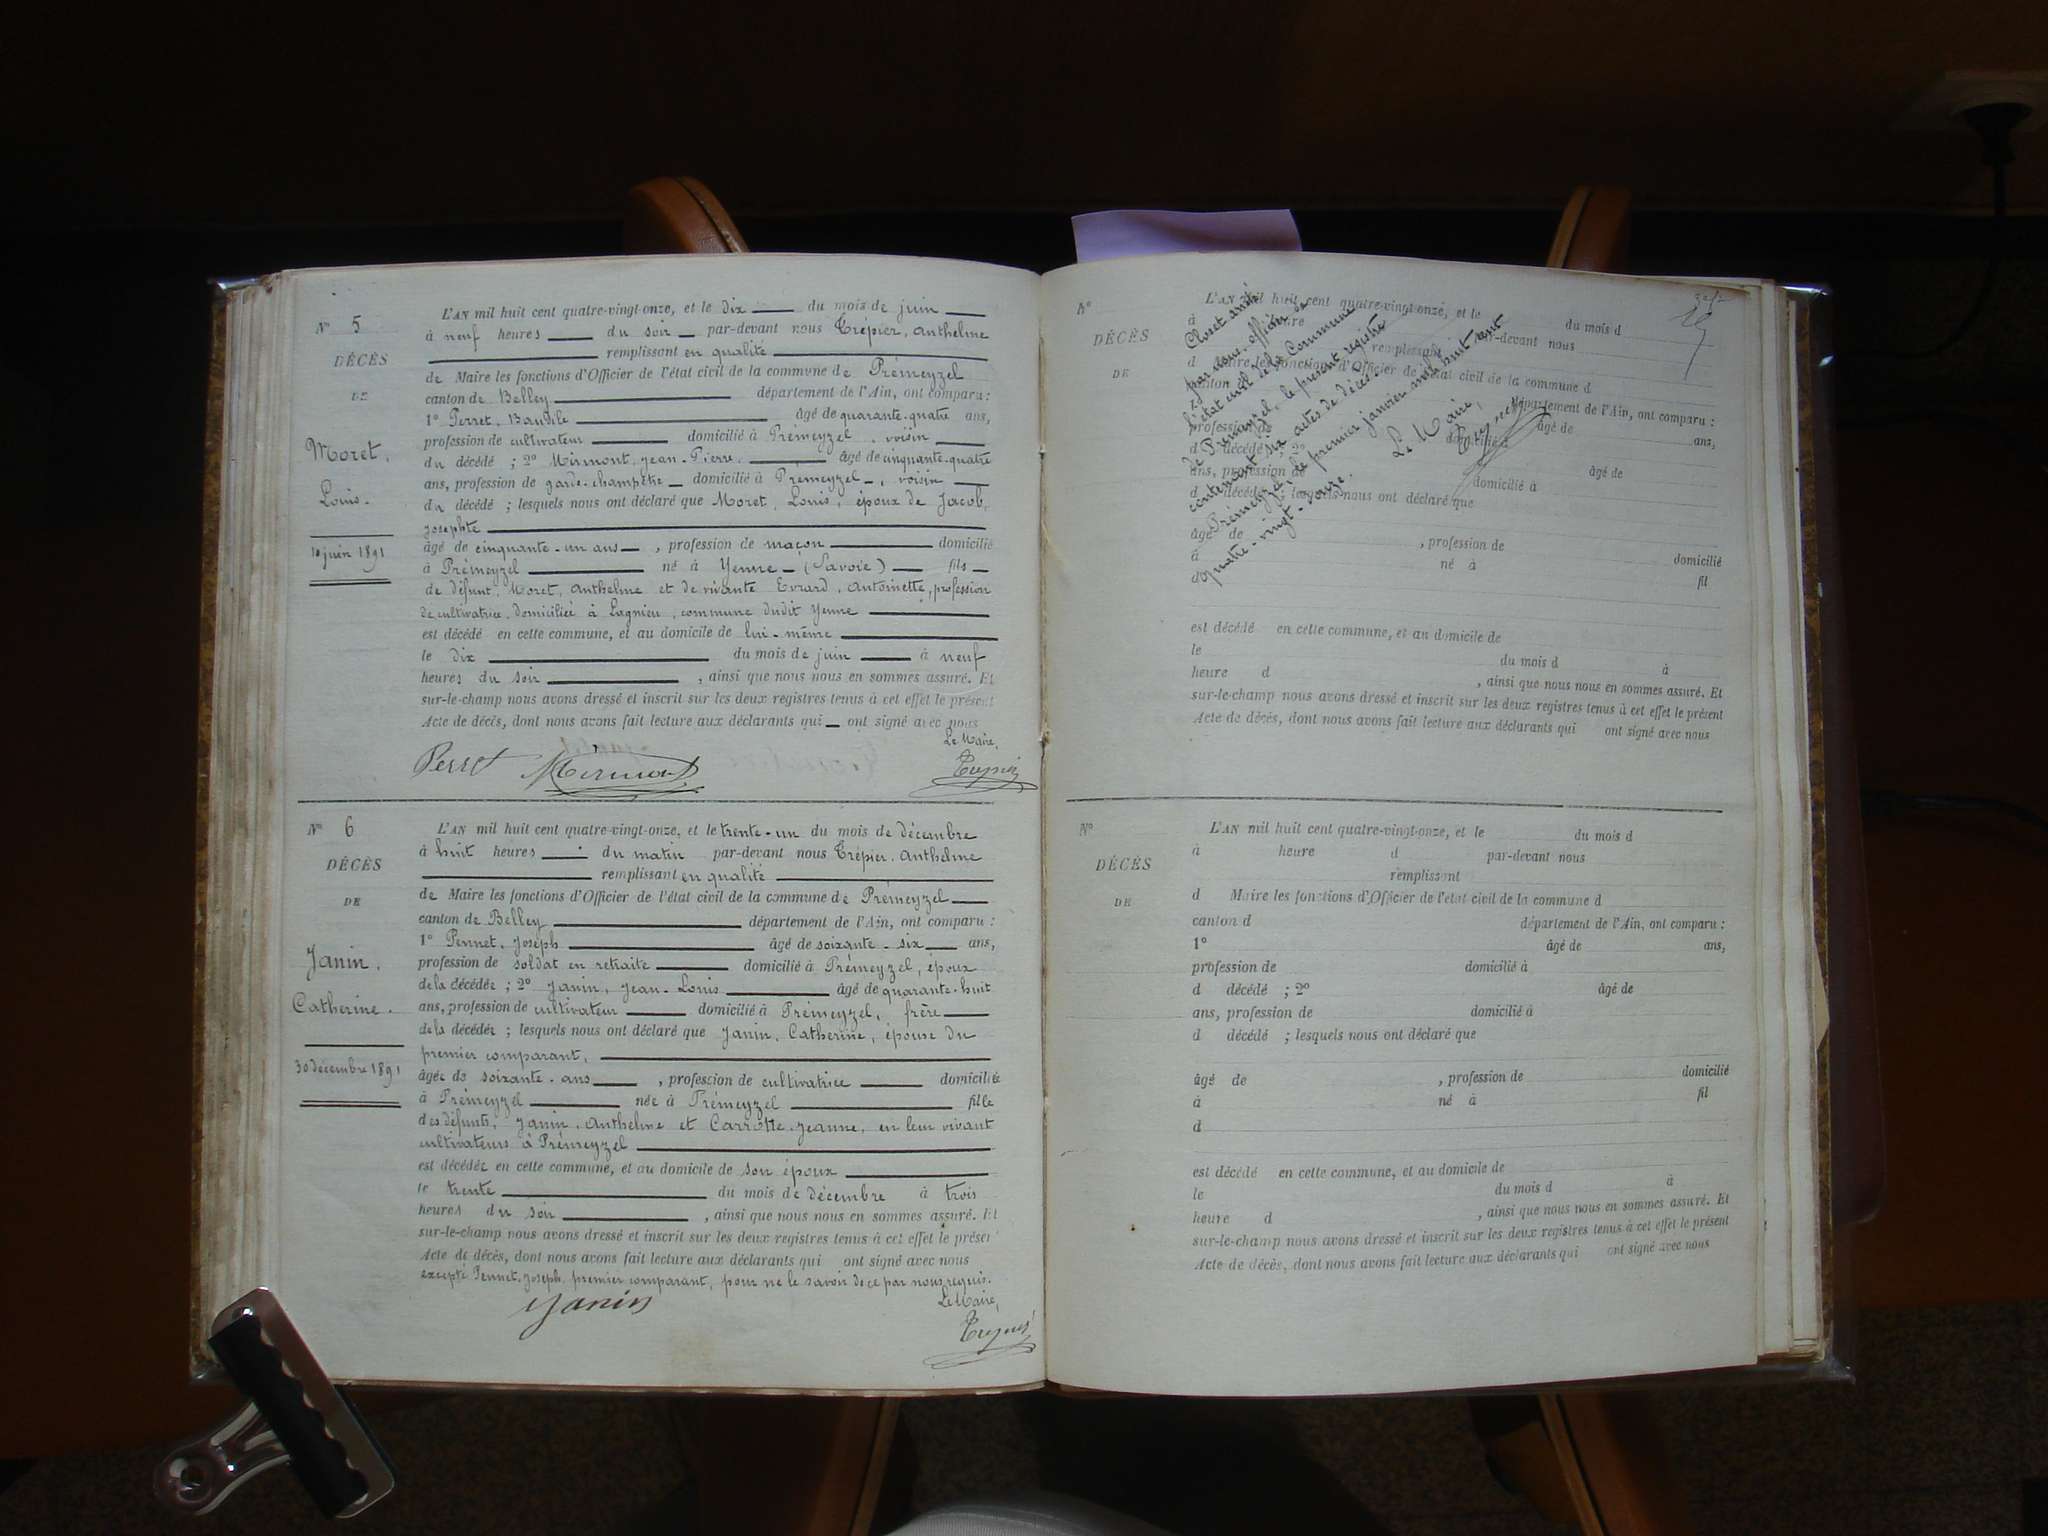 N° 5
DÉCÈS
DE
Moret,
Louis.
10 juin 1891
L'AN mil huit cent quatre-vingt-onze, et le dix du mois de juin
à neuf heures du soir par-devant nous Trépier, Anthelme
remplissant en qualité
de Maire les fonctions d'Officier de l'état civil de la commune de Prémeyzel
canton de Belley département de l'Ain, ont comparu :
1° Perret, Baudile âgé de quarante-quatre ans,
profession de cultivateur domicilié à Prémeyzel, voisin
du décédé ; 2° Mermont, Jean-Pierre, âgé de cinquante-quatre
ans, profession de garde-champêtre domicilié à Prémeyzel, voisin
du décédé ; lesquels nous ont déclaré que Moret, Louis, époux de Jacob,
Josephte
âgé de cinquante-un ans, profession de maçon domicilié
à Prémeyzel né à Yenne (Savoie) fils
de défunt, Moret, Anthelme et de vivante Evrard, Antoinette, profession
de cultivatrice, domiciliée à Lagnieu, commune dudit Yenne
est décédé en cette commune, et au domicile de lui-même
le dix du mois de juin à neuf
heures du soir, ainsi que nous nous en sommes assuré. Et
sur-le-champ nous avons dressé et inscrit sur les deux registres tenus à cet effet le présent
Acte de décès, dont nous avons fait lecture aux déclarants qui ont signé avec nous
Le Maire,
Perret Mermont
N° 6
DÉCÈS
DE
Janin,
Catherine.
30 décembre 1891
L'AN mil huit cent quatre-vingt-onze, et le trente-un du mois de décembre
à huit heures du matin par-devant nous Trépier, Anthelme
remplissant en qualité
de Maire les fonctions d'Officier de l'état civil de la commune de Prémeyzel
canton de Belley département de l'Ain, ont comparu :
1° Pennet, Joseph âgé de soixante-six ans,
profession de soldat en retraite domicilié à Prémeyzel, époux
de la décédée ; 2° Janin, Jean-Louis âgé de quarante-huit
ans, profession de cultivateur domicilié à Prémeyzel, frère
de la décédée ; lesquels nous ont déclaré que Janin, Catherine, épouse du
premier comparant,
âgée de soixante ans, profession de cultivatrice domiciliée
à Prémeyzel née à Prémeyzel fille
des défunts, Janin, Anthelme et Carrotte, Jeanne, en leur vivant
cultivateurs à Prémeyzel
est décédée en cette commune, et au domicile de son époux
le trente du mois de décembre à trois
heures du soir, ainsi que nous nous en sommes assuré. Et
sur-le-champ nous avons dressé et inscrit sur les deux registres tenus à cet effet le présent
Acte de décès, dont nous avons fait lecture aux déclarants qui ont signé avec nous
excepté Pennet, Joseph, premier comparant, pour ne le savoir de ce par nous requis.
Le Maire,
Janin
N°
DÉCÈS
DE
L'AN mil huit cent quatre-vingt-onze, et le du mois d
à heure d par-devant nous
remplissant
d Maire les fonctions d'Officier de l'état civil de la commune d
canton d département de l'Ain, ont comparu :
1° âgé de ans,
profession de domicilié à
d décédé ; 2° âgé de
ans, profession de domicilié à
d décédé ; lesquels nous ont déclaré que
âgé de , profession de domicilié
à né à fil
d
est décédé en cette commune, et au domicile de
le du mois d à
heure d , ainsi que nous nous en sommes assuré. Et
sur-le-champ nous avons dressé et inscrit sur les deux registres tenus à cet effet le présent
Acte de décès, dont nous avons fait lecture aux déclarants qui ont signé avec nous
Clos et arrêté
par nous, officier de
l'état civil de la commune
de Prémeyzel, le présent registre
contenant six actes de décès.
à Prémeyzel, le premier janvier mil huit cent
quatre-vingt-douze.
Le Maire,
N°
DÉCÈS
DE
L'AN mil huit cent quatre-vingt-onze, et le du mois d
à heure d par-devant nous
remplissant
d Maire les fonctions d'Officier de l'état civil de la commune d
canton d département de l'Ain, ont comparu :
1° âgé de ans,
profession de domicilié à
d décédé ; 2° âgé de
ans, profession de domicilié à
d décédé ; lesquels nous ont déclaré que
âgé de , profession de domicilié
à né à fil
d
est décédé en cette commune, et au domicile de
le du mois d à
heure d , ainsi que nous nous en sommes assuré. Et
sur-le-champ nous avons dressé et inscrit sur les deux registres tenus à cet effet le présent
Acte de décès, dont nous avons fait lecture aux déclarants qui ont signé avec nous